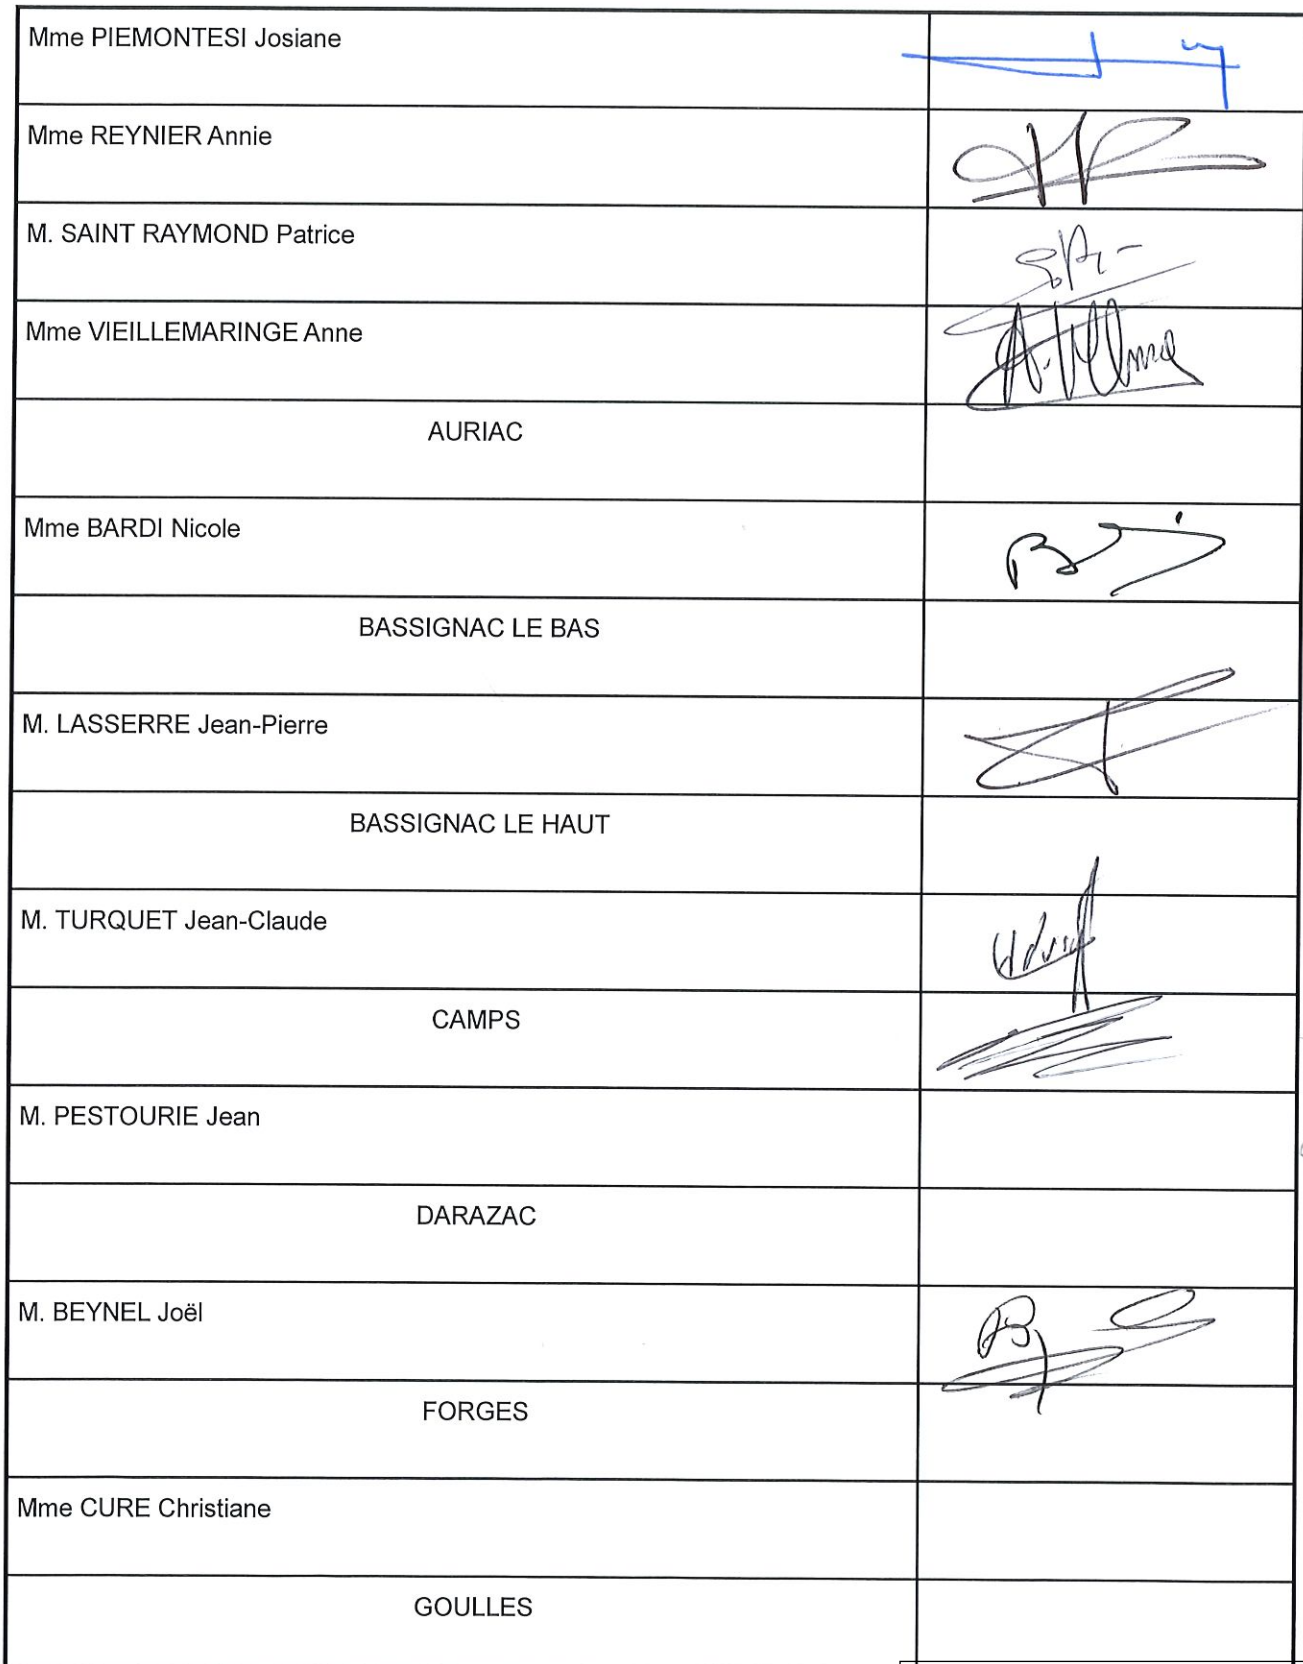 Mme PIEMONTESI Josiane
Mme REYNIER Annie
M. SAINT RAYMOND Patrice
Mme VIEILLEMARINGE Anne
AURIAC
Mme BARDI Nicole
BASSIGNAC LE BAS
M. LASSERRE Jean-Pierre
BASSIGNAC LE HAUT
M. TURQUET Jean-Claude
CAMPS
M. PESTOURIE Jean
DARAZAC
M. BEYNEL Joël
FORGES
Mme CURE Christiane
GOULLES